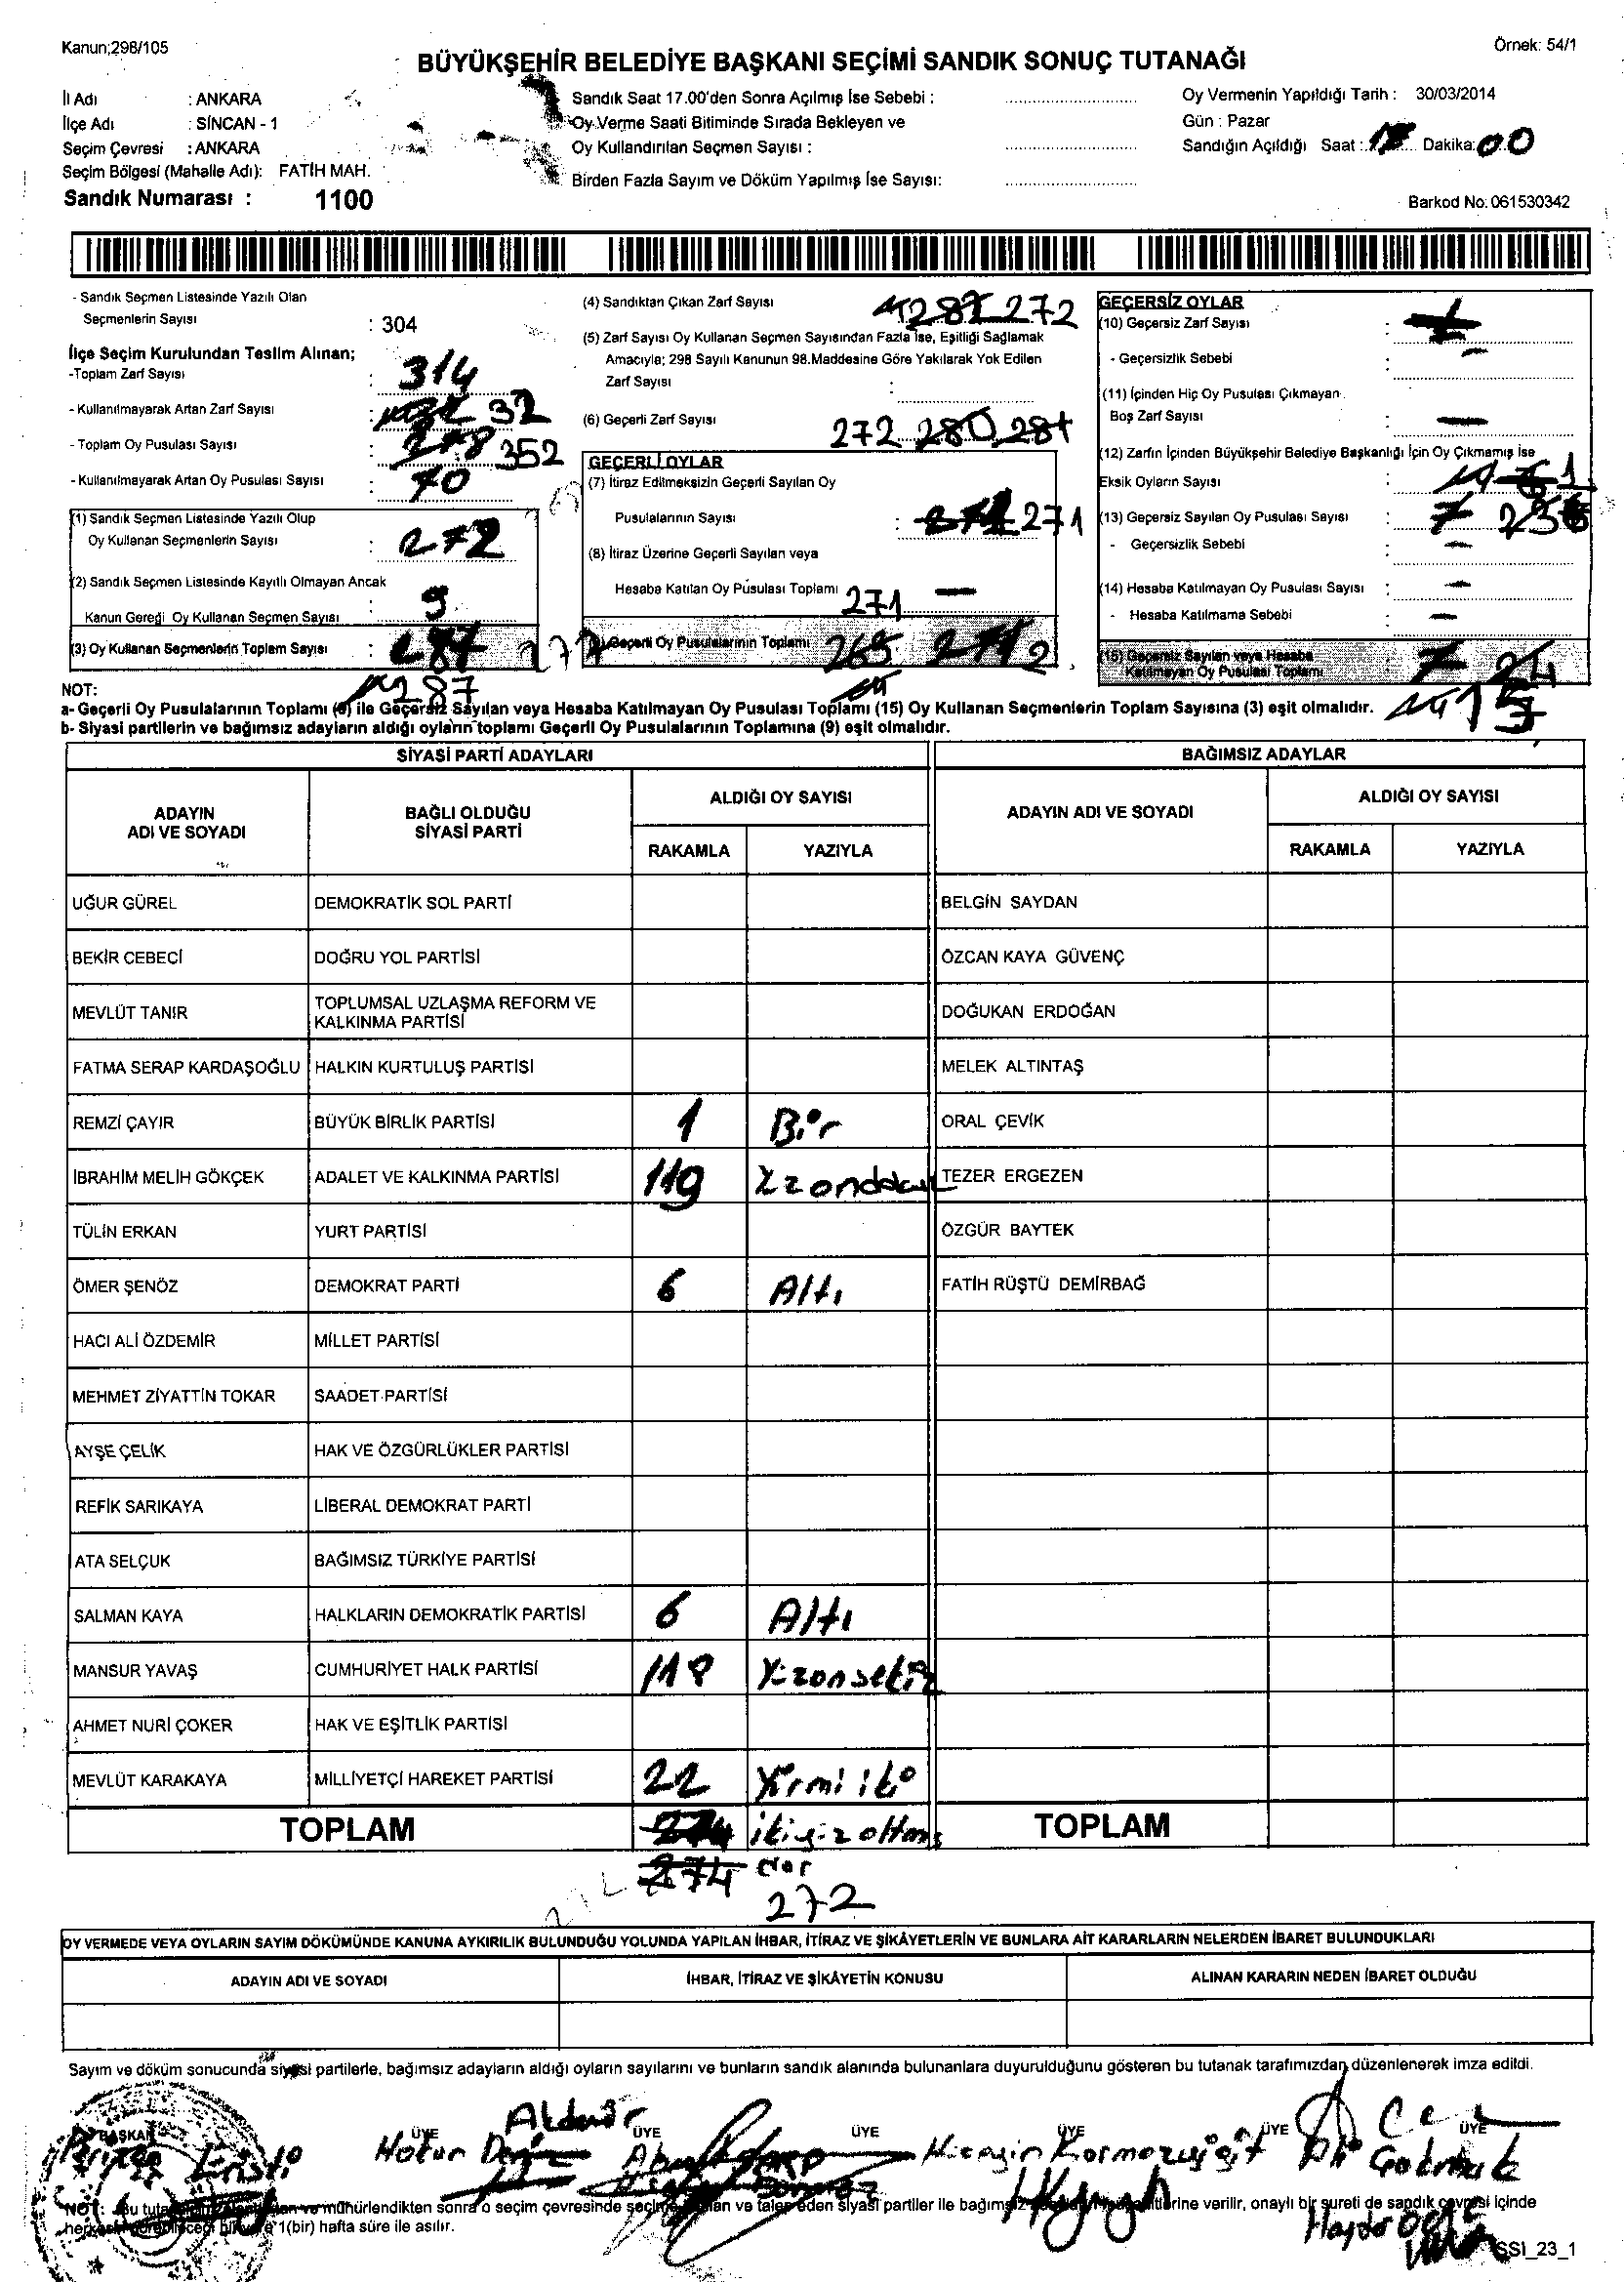 Kanun;298/105
Örnek: 54/1
BÜYÜKŞEHİR BELEDİYE BAŞKANI SEÇİMİ SANDIK SONUÇ TUTANAĞI
İl Adı : ANKARA
İlçe Adı : SİNCAN - 1
Seçim Çevresi : ANKARA
Seçim Bölgesi (Mahalle Adı): FATİH MAH.
Sandık Numarası : 1100
Sandık Saat 17.00'den Sonra Açılmış İse Sebebi :
Oy Verme Saati Bitiminde Sırada Bekleyen ve
Oy Kullandırılan Seçmen Sayısı :
Birden Fazla Sayım ve Döküm Yapılmış İse Sayısı:
Oy Vermenin Yapıldığı Tarih : 30/03/2014
Gün : Pazar
Sandığın Açıldığı Saat : Dakika: 00
Barkod No: 061530342
- Sandık Seçmen Listesinde Yazılı Olan
Seçmenlerin Sayısı : 304
İlçe Seçim Kurulundan Teslim Alınan;
-Toplam Zarf Sayısı : 314
- Kullanılmayarak Artan Zarf Sayısı : 32
- Toplam Oy Pusulası Sayısı : 278 352
- Kullanılmayarak Artan Oy Pusulası Sayısı : 70
(1) Sandık Seçmen Listesinde Yazılı Olup
Oy Kullanan Seçmenlerin Sayısı : 272
(2) Sandık Seçmen Listesinde Kayıtlı Olmayan Ancak
Kanun Gereği Oy Kullanan Seçmen Sayısı : 9
(3) Oy Kullanan Seçmenlerin Toplam Sayısı : 287
(4) Sandıktan Çıkan Zarf Sayısı 287 272
(5) Zarf Sayısı Oy Kullanan Seçmen Sayısından Fazla İse, Eşitliği Sağlamak
Amacıyla; 298 Sayılı Kanunun 98.Maddesine Göre Yakılarak Yok Edilen
Zarf Sayısı :
(6) Geçerli Zarf Sayısı 272 280 281
GEÇERLİ OYLAR
(7) İtiraz Edilmeksizin Geçerli Sayılan Oy
Pusulalarının Sayısı : 271
(8) İtiraz Üzerine Geçerli Sayılan veya
Hesaba Katılan Oy Pusulası Toplamı 271 —
(9) Geçerli Oy Pusulalarının Toplamı 265
GEÇERSİZ OYLAR
(10) Geçersiz Zarf Sayısı :
- Geçersizlik Sebebi : —
(11) İçinden Hiç Oy Pusulası Çıkmayan
Boş Zarf Sayısı : —
(12) Zarfın İçinden Büyükşehir Belediye Başkanlığı İçin Oy Çıkmamış İse
Eksik Oyların Sayısı : 1
(13) Geçersiz Sayılan Oy Pusulası Sayısı : 7
- Geçersizlik Sebebi : —
(14) Hesaba Katılmayan Oy Pusulası Sayısı : —
- Hesaba Katılmama Sebebi : —
(15) Geçersiz Sayılan veya Hesaba
Katılmayan Oy Pusulası Toplamı : 7
NOT:
a- Geçerli Oy Pusulalarının Toplamı (9) ile Geçersiz Sayılan veya Hesaba Katılmayan Oy Pusulası Toplamı (15) Oy Kullanan Seçmenlerin Toplam Sayısına (3) eşit olmalıdır.
b- Siyasi partilerin ve bağımsız adayların aldığı oyların toplamı Geçerli Oy Pusulalarının Toplamına (9) eşit olmalıdır.
SİYASİ PARTİ ADAYLARI BAĞIMSIZ ADAYLAR
ADAYIN ADI VE SOYADI BAĞLI OLDUĞU SİYASİ PARTİ ALDIĞI OY SAYISI ADAYIN ADI VE SOYADI ALDIĞI OY SAYISI
RAKAMLA YAZIYLA RAKAMLA YAZIYLA
UĞUR GÜREL DEMOKRATİK SOL PARTİ BELGİN SAYDAN
BEKİR CEBECİ DOĞRU YOL PARTİSİ ÖZCAN KAYA GÜVENÇ
MEVLÜT TANIR TOPLUMSAL UZLAŞMA REFORM VE KALKINMA PARTİSİ DOĞUKAN ERDOĞAN
FATMA SERAP KARDAŞOĞLU HALKIN KURTULUŞ PARTİSİ MELEK ALTINTAŞ
REMZİ ÇAYIR BÜYÜK BİRLİK PARTİSİ 1 Bir ORAL ÇEVİK
İBRAHİM MELİH GÖKÇEK ADALET VE KALKINMA PARTİSİ 119 TEZER ERGEZEN
TÜLİN ERKAN YURT PARTİSİ ÖZGÜR BAYTEK
ÖMER ŞENÖZ DEMOKRAT PARTİ 6 Altı FATİH RÜŞTÜ DEMİRBAĞ
HACI ALİ ÖZDEMİR MİLLET PARTİSİ
MEHMET ZİYATTİN TOKAR SAADET PARTİSİ
AYŞE ÇELİK HAK VE ÖZGÜRLÜKLER PARTİSİ
REFİK SARIKAYA LİBERAL DEMOKRAT PARTİ
ATA SELÇUK BAĞIMSIZ TÜRKİYE PARTİSİ
SALMAN KAYA HALKLARIN DEMOKRATİK PARTİSİ 6 Altı
MANSUR YAVAŞ CUMHURİYET HALK PARTİSİ 118 Yüzonsekiz
AHMET NURİ ÇOKER HAK VE EŞİTLİK PARTİSİ
MEVLÜT KARAKAYA MİLLİYETÇİ HAREKET PARTİSİ 22 Yirmi iki
TOPLAM TOPLAM
274
272
OY VERMEDE VEYA OYLARIN SAYIM DÖKÜMÜNDE KANUNA AYKIRILIK BULUNDUĞU YOLUNDA YAPILAN İHBAR, İTİRAZ VE ŞİKÂYETLERİN VE BUNLARA AİT KARARLARIN NELERDEN İBARET BULUNDUKLARI
ADAYIN ADI VE SOYADI İHBAR, İTİRAZ VE ŞİKÂYETİN KONUSU ALINAN KARARIN NEDEN İBARET OLDUĞU
Sayım ve döküm sonucunda siyasi partilerle, bağımsız adayların aldığı oyların sayılarını ve bunların sandık alanında bulunanlara duyurulduğunu gösteren bu tutanak tarafımızdan düzenlenerek imza edildi.
BAŞKAN ÜYE ÜYE ÜYE ÜYE ÜYE ÜYE
NOT: Bu mühürlendikten sonra o seçim çevresinde ve talep eden siyasi partiler ile bağımsız verilir, onaylı bir sureti de sandık çevresi içinde
1(bir) hafta süre ile asılır.
SSI_23_1